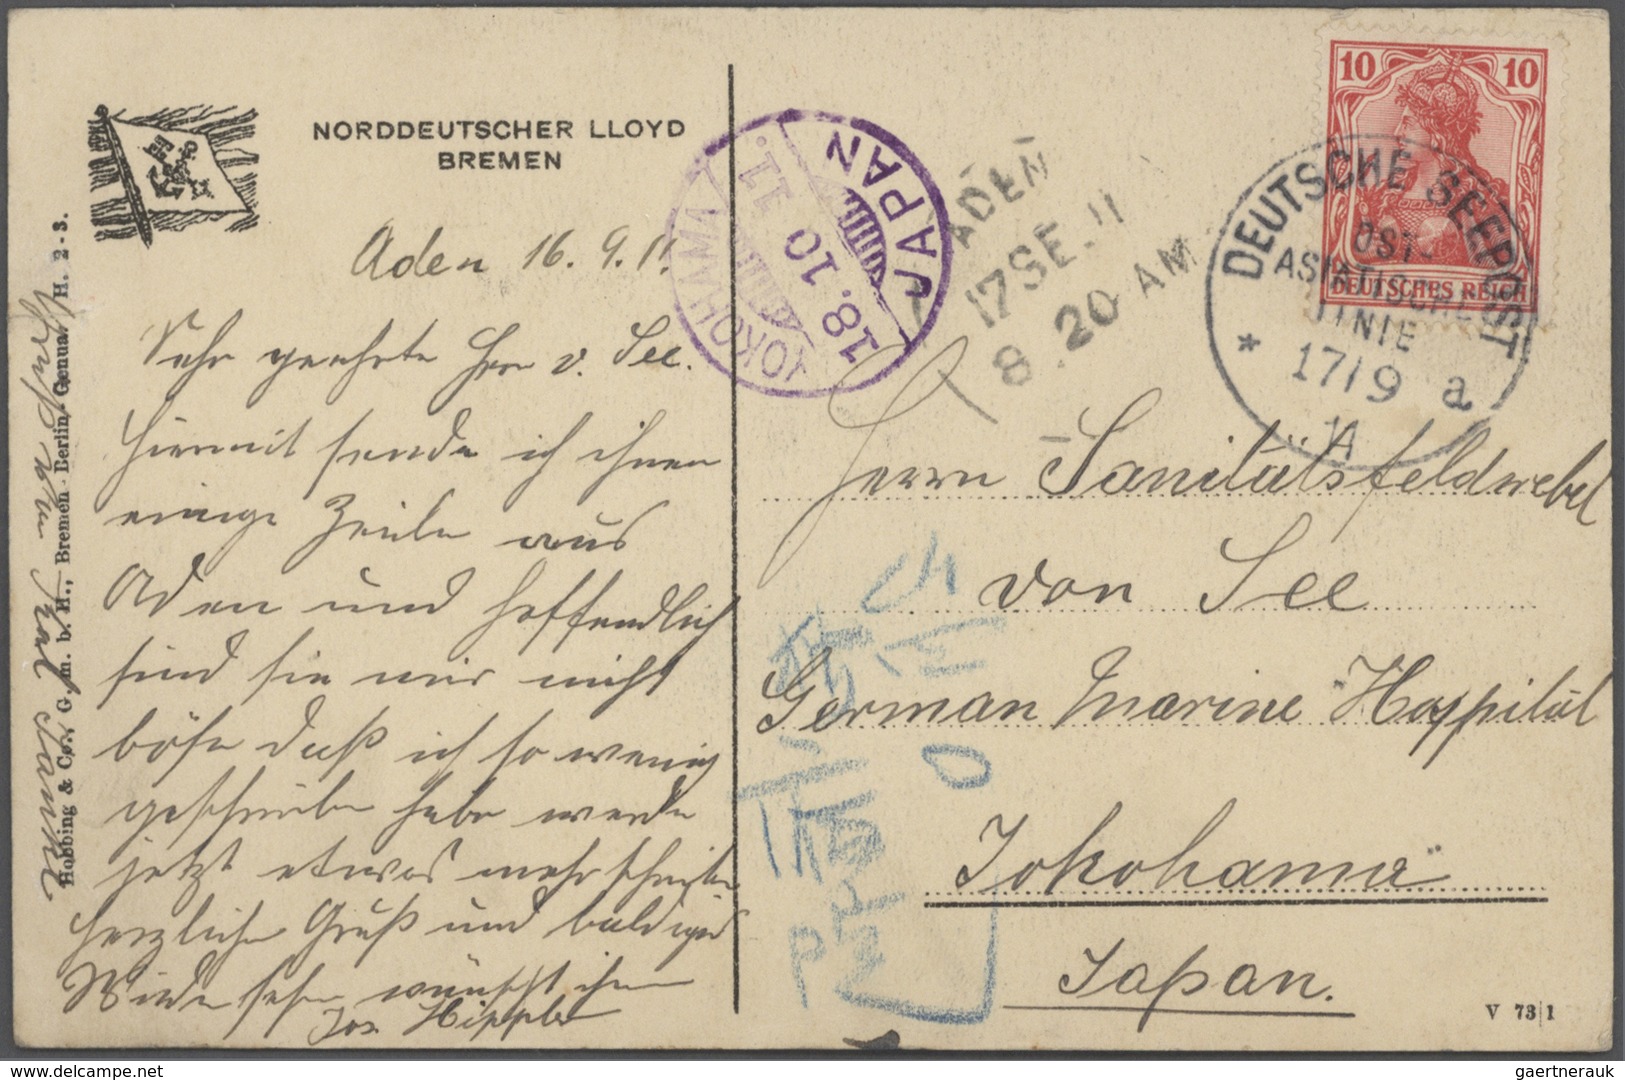 NORDDEUTSCHER LLOYD
BREMEN
Aden 16. 9. 11.
Sehr geehrte Herr v. See.
Hiermit sende ich ihnen
einige Zeilen aus
Aden und hoffendlich
sind sie mir nicht
böse daß ich so wenig
geschrieben habe werde
jetzt etwas mehr schreiben
herzliche Gruß und baldiges
Wiedersehn wünscht ihnen
Jos. Hippler
Gruß von
Hobbing & Co., G. m. b. H., Bremen - Berlin, Genua. H. 2-3.
YOKOHAMA
18.10.11.
JAPAN
ADEN
17SE.11
8.20AM
10 10
DEUTSCHES REICH
DEUTSCHE SEEPOST
OST-
ASIATISCHE
LINIE
* 17/9 a
11
Herrn Sanitätsfeldwebel
von See
German Marine Hospital
Yokohama
Japan.
V 73|1
delcampe.net
gaertnerauk